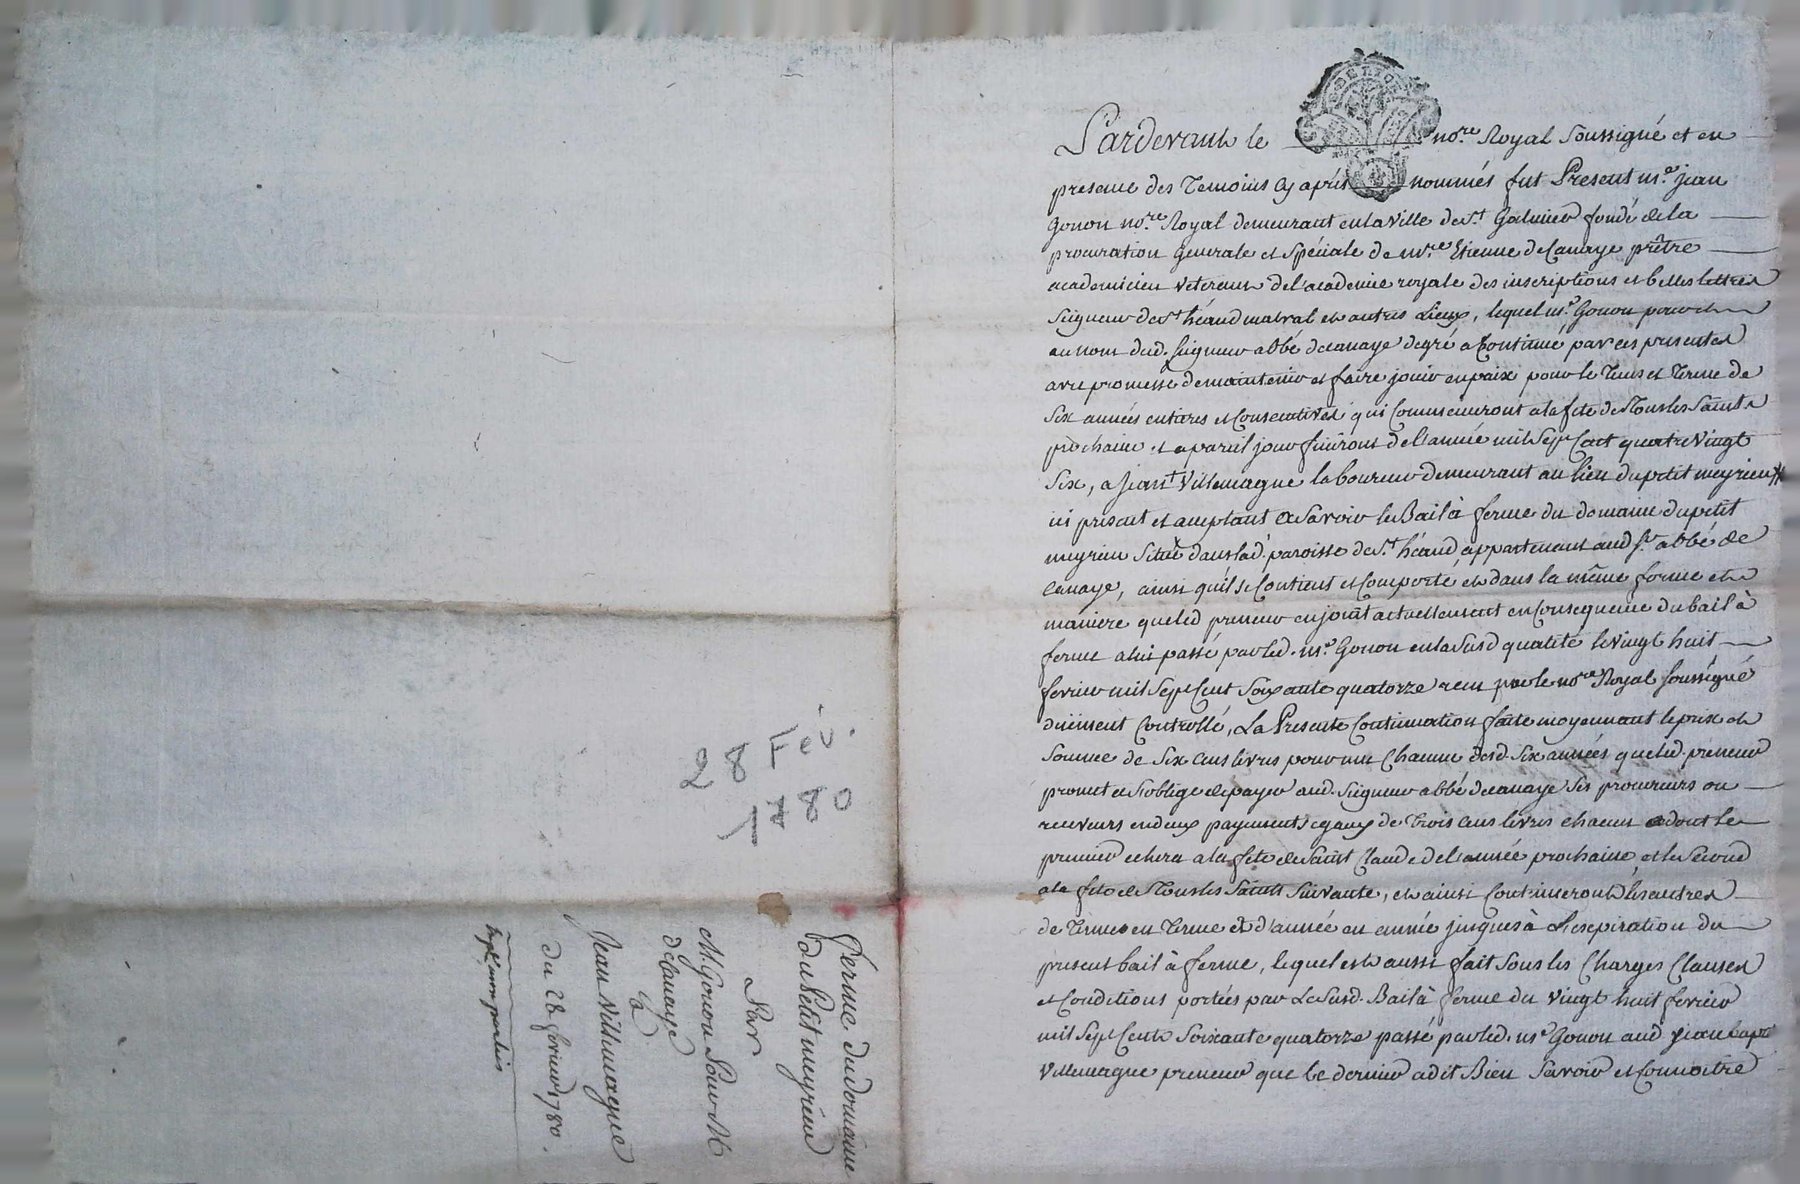 Pardevant le no.re Royal Soussigné et en
presence des Temoins cy après nommés fut Present m.e jean
Gonon no.re Royal demeurant en la ville de st. Galmier fondé de la
procuration Generale et Spéciale de m.re Etienne de Canaye prêtre
academicien veteran de l'academie royale des inscriptions et belles lettres
Seigneur de st héand malval et autres Lieux, lequel m.e Gonon pour et
au nom dud. seigneur abbé de canaye degré a Continué par ces presentes
avec promesse de maintenir et faire jouir en paix pour le Tems et Terme de
Six années entieres et Consecutives qui Commenceront a la fete de Tous les Saints
prochaine et a pareil jour finiront de l'année mil Sept Cent quatre vingt
Six, a Jean Villemagne laboureur demeurant au lieu du petit meyrieu
ici present et acceptant a Savoir le Bail à ferme du domaine du petit
meyrieu Situé dans lad. paroisse de st. héand appartenant aud sr. abbé de
canaye, ainsi qu'il se Contient et Comporte et dans la même forme et
maniere que led preneur en jouit actuellement en Consequence du bail à
ferme a lui passé par led. m.e Gonon en la Susd qualité le vingt huit
fevrier mil Sept Cent Soixante quatorze recu par le no.re Royal soussigné
duëment Controllé, La Presente Continuation faite moyennant le prix et
Somme de Six Cens livres pour une Chacune desd. Six années que led. preneur
promet et S'oblige de payer aud. Seigneur abbé de canaye Ses procureurs ou
receveurs en deux payements egaux de Trois Cens livres chacun dont le
premier echera a la fete de Saint Claude de l'année prochaine et le Second
a la fete de Tous les Saints Suivante, et ainsi Continueront les autres
de Terme en Terme et d'année en année jusques à L'expiration du
present bail à ferme, lequel est aussi fait Sous les Charges Clauses
et Conditions portées par Le Susd. Bail à ferme du vingt huit fevrier
mil Sept Cent Soixante quatorze passé par led. m.e Gonon aud jean bapte
Villemagne preneur que ce dernier a dit Bien Savoir et Connoitre
28 Fév.
1780
Ferme du domaine
du Petit meyrieu
Par
M. Gonon Pour M
de Canaye
a
Jean Villemagne
Du 28 fevrier 1780.